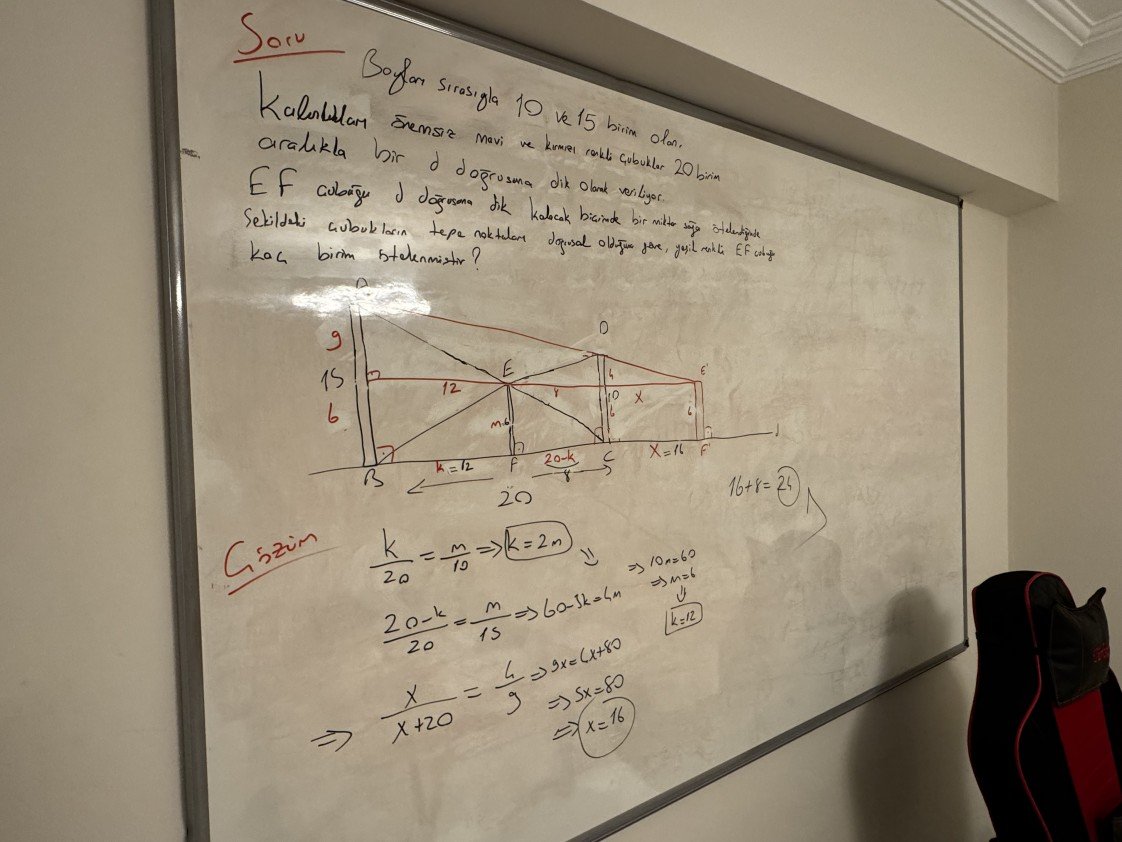 Soru
Boyları sırasıyla 10 ve 15 birim olan,
Kalınlıkları önemsiz mavi ve kırmızı renkli çubuklar 20 birim
aralıkla bir d doğrusuna dik olarak veriliyor.
EF çubuğu d doğrusuna dik kalacak biçimde bir miktar sağa ötelendiğinde
Şekildeki çubukların tepe noktaları doğrusal olduğuna göre, yeşil renkli EF çubuğu
kaç birim ötelenmiştir?
D
9
E
4
E'
15
12
8
10
X
6
m=6
6
6
d
B
k=12
F
20-k
C
X=16
F'
8
20
16+8=24
Çözüm
k/20 = m/10 ⇒ k=2m
⇒ 10m=60
⇒ m=6
20-k/20 = m/15 ⇒ 60-3k=4m
k=12
⇒ x/x+20 = 4/9 ⇒ 9x=4x+80
⇒ 5x=80
⇒ x=16